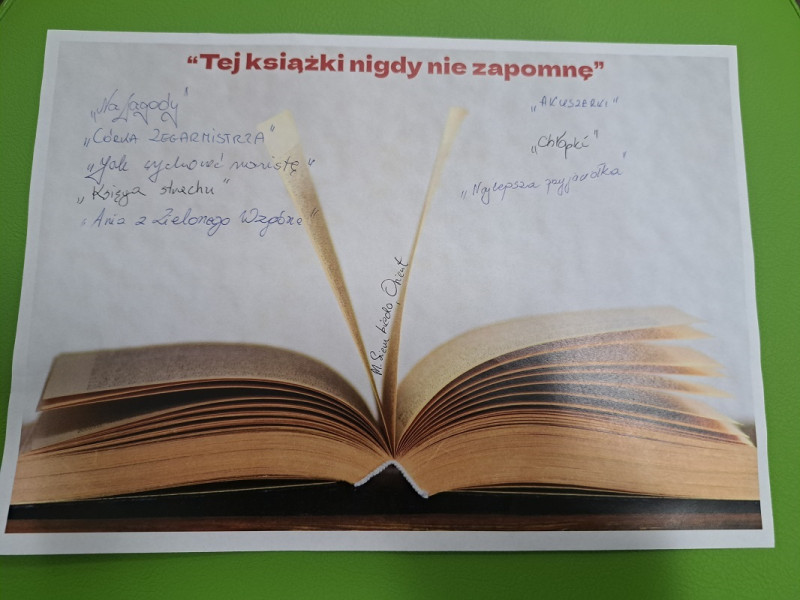 “Tej książki nigdy nie zapomnę”
„Na Jagody”
„CÓRKA ZEGARMISTRZA”
„Jak wychować
„Księga strachu”
„Ania z Zielonego Wzgórza”
„AKUSZERKI”
„Chłopki”
„Najlepsza przyjaciółka”
Orient